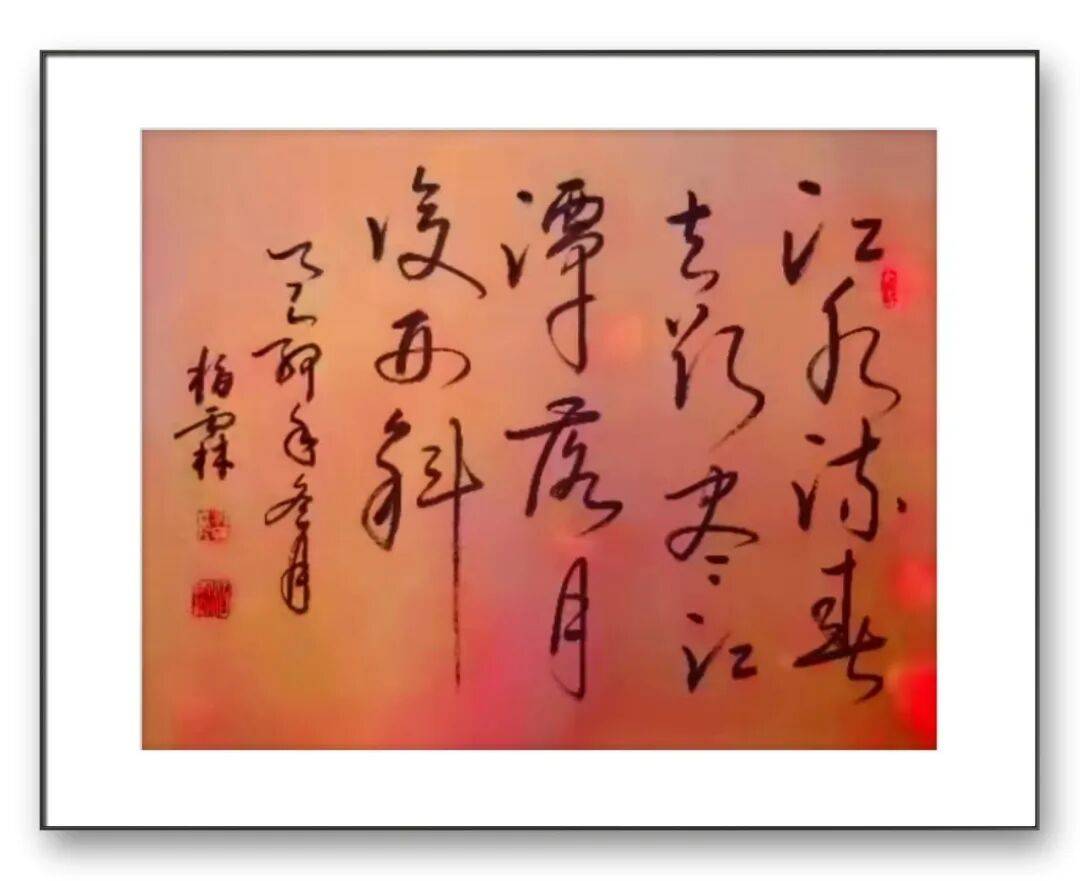 江水流春
去欲尽江
潭落月
復西斜
乙巳年冬月
梅霖